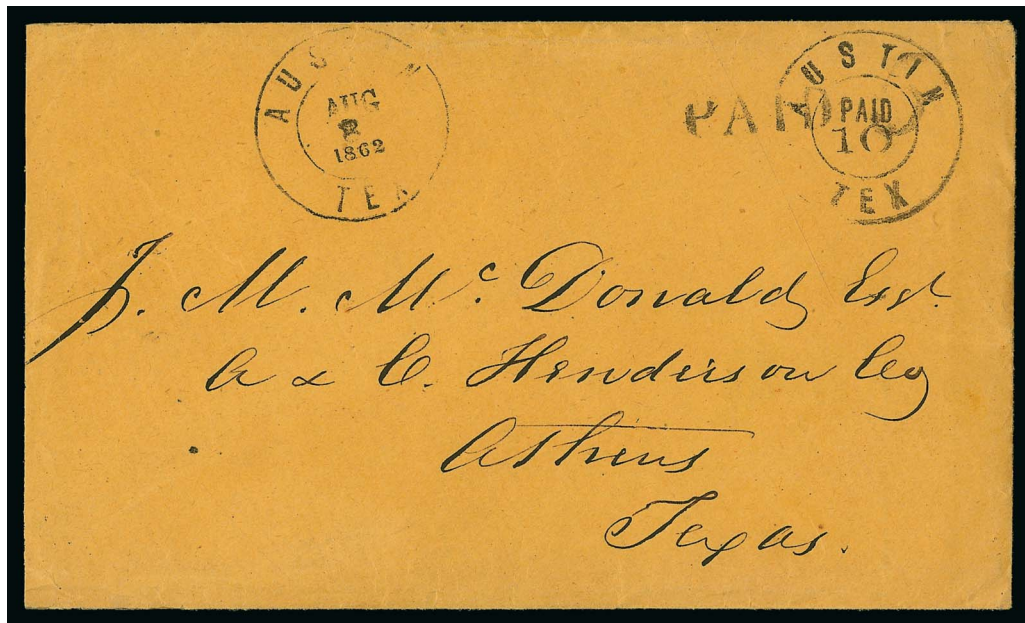 AUSTIN
AUG
2
1862
TEX
PAID
AUSTIN
PAID
10
TEX
J. M. Mc. Donald Esqr.
A & C. Henderson Co
Athens
Texas.